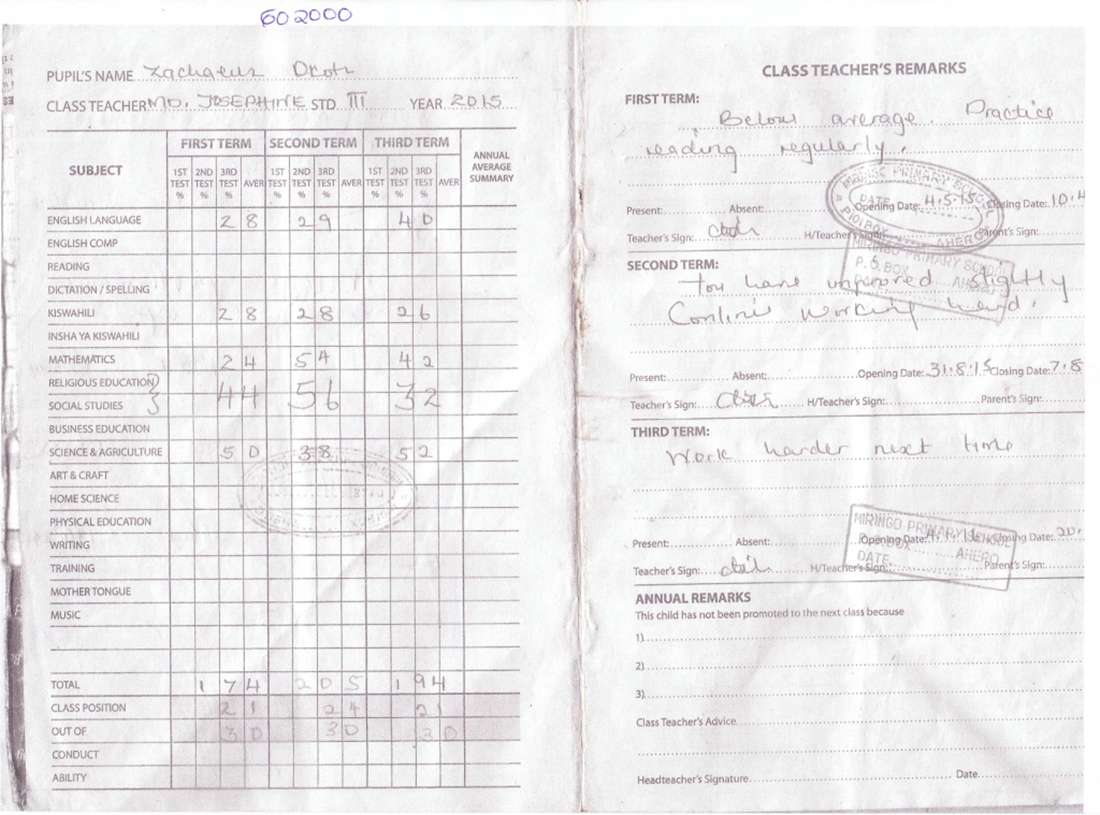 602000
PUPIL'S NAME Zachaeus
CLASS TEACHER MD. JOSEPHINE STD III YEAR 2015
SUBJECT FIRST TERM SECOND TERM THIRD TERM ANNUAL AVERAGE SUMMARY
1ST TEST % 2ND TEST % 3RD TEST % AVER 1ST TEST % 2ND TEST % 3RD TEST % AVER 1ST TEST % 2ND TEST % 3RD TEST % AVER
ENGLISH LANGUAGE 28 29 40
ENGLISH COMP
READING
DICTATION / SPELLING
KISWAHILI 28 28 26
INSHA YA KISWAHILI
MATHEMATICS 24 54 42
RELIGIOUS EDUCATION
SOCIAL STUDIES 44 56 32
BUSINESS EDUCATION
SCIENCE & AGRICULTURE 50 38 52
ART & CRAFT
HOME SCIENCE
PHYSICAL EDUCATION
WRITING
TRAINING
MOTHER TONGUE
MUSIC
TOTAL 174 205 194
CLASS POSITION 21 24 21
OUT OF 30 30 30
CONDUCT
ABILITY
CLASS TEACHER'S REMARKS
FIRST TERM:
Below average. Practice
reading regularly.
Present: Absent: Opening Date: 4.5.15 Closing Date: 10.4
Teacher's Sign: H/Teacher's Sign: Parent's Sign:
MIRINGO PRIMARY SCHOOL
DATE
P.O. BOX AHERO
SECOND TERM:
MIRINGO PRIMARY SCHOOL
P.O. BOX AHERO
You have improved slightly
Continue working hard.
Present: Absent: Opening Date: 31.8.15 Closing Date: 7.8
Teacher's Sign: H/Teacher's Sign: Parent's Sign:
THIRD TERM:
Work harder next time
MIRINGO PRIMARY SCHOOL
BOX AHERO
DATE
Present: Absent: Opening Date: Closing Date: 20.
Teacher's Sign: H/Teacher's Sign: Parent's Sign:
ANNUAL REMARKS
This child has not been promoted to the next class because
1)
2)
3)
Class Teacher's Advice
Headteacher's Signature Date